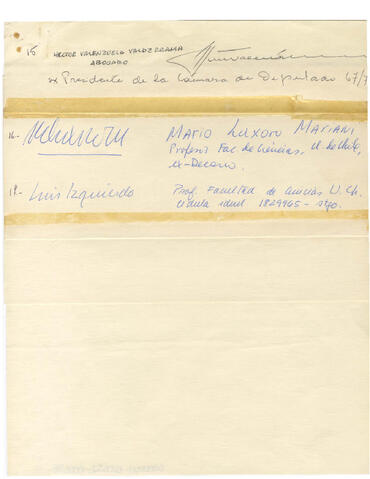 15 HECTOR VALENZUELA VALDERRAMA
ABOGADO
ex Presidente de la Cámara de Diputados 67/7
16.- MARIO LUXORO MARIANI
Profesor Fac. de Ciencias, U. de Chile,
ex-Decano.
17.- Luis Izquierdo Prof. Facultad de Ciencias U. Ch.
cédula ident 1829965 - Stgo.